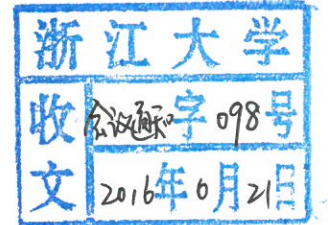 浙江大学
收文
会议通知字098号
2016年6月21日